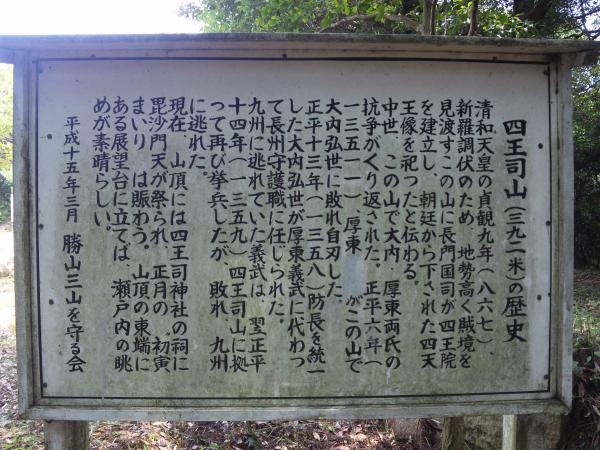 四王司山(三九二米)の歴史
清和天皇の貞観九年(八六七)、
新羅調伏のため、地勢高く賊境を
見渡すこの山に長門国司が四王院
を建立し、朝廷から下された四天
王像を祀ったと伝わる。
中世、この山で大内、厚東両氏の
抗争がくり返された。正平六年(
一三五一)厚東 がこの山で
大内弘世に敗れ自刃した。
正平十三年(一三五八)防長を統一
した大内弘世が厚東義武に代わっ
て長州守護職に任じられた。
九州に逃れていた義武は、翌正平
十四年(一三五九)四王司山に拠
って再び挙兵したが、敗れ、九州
に逃れた。
現在、山頂には四王司神社の祠に
毘沙門天が祭られ、正月の、初寅
まいり、は賑わう。山頂の東端に
ある展望台に立てば、瀬戸内の眺
めが素晴らしい。
平成十五年三月 勝山三山を守る会